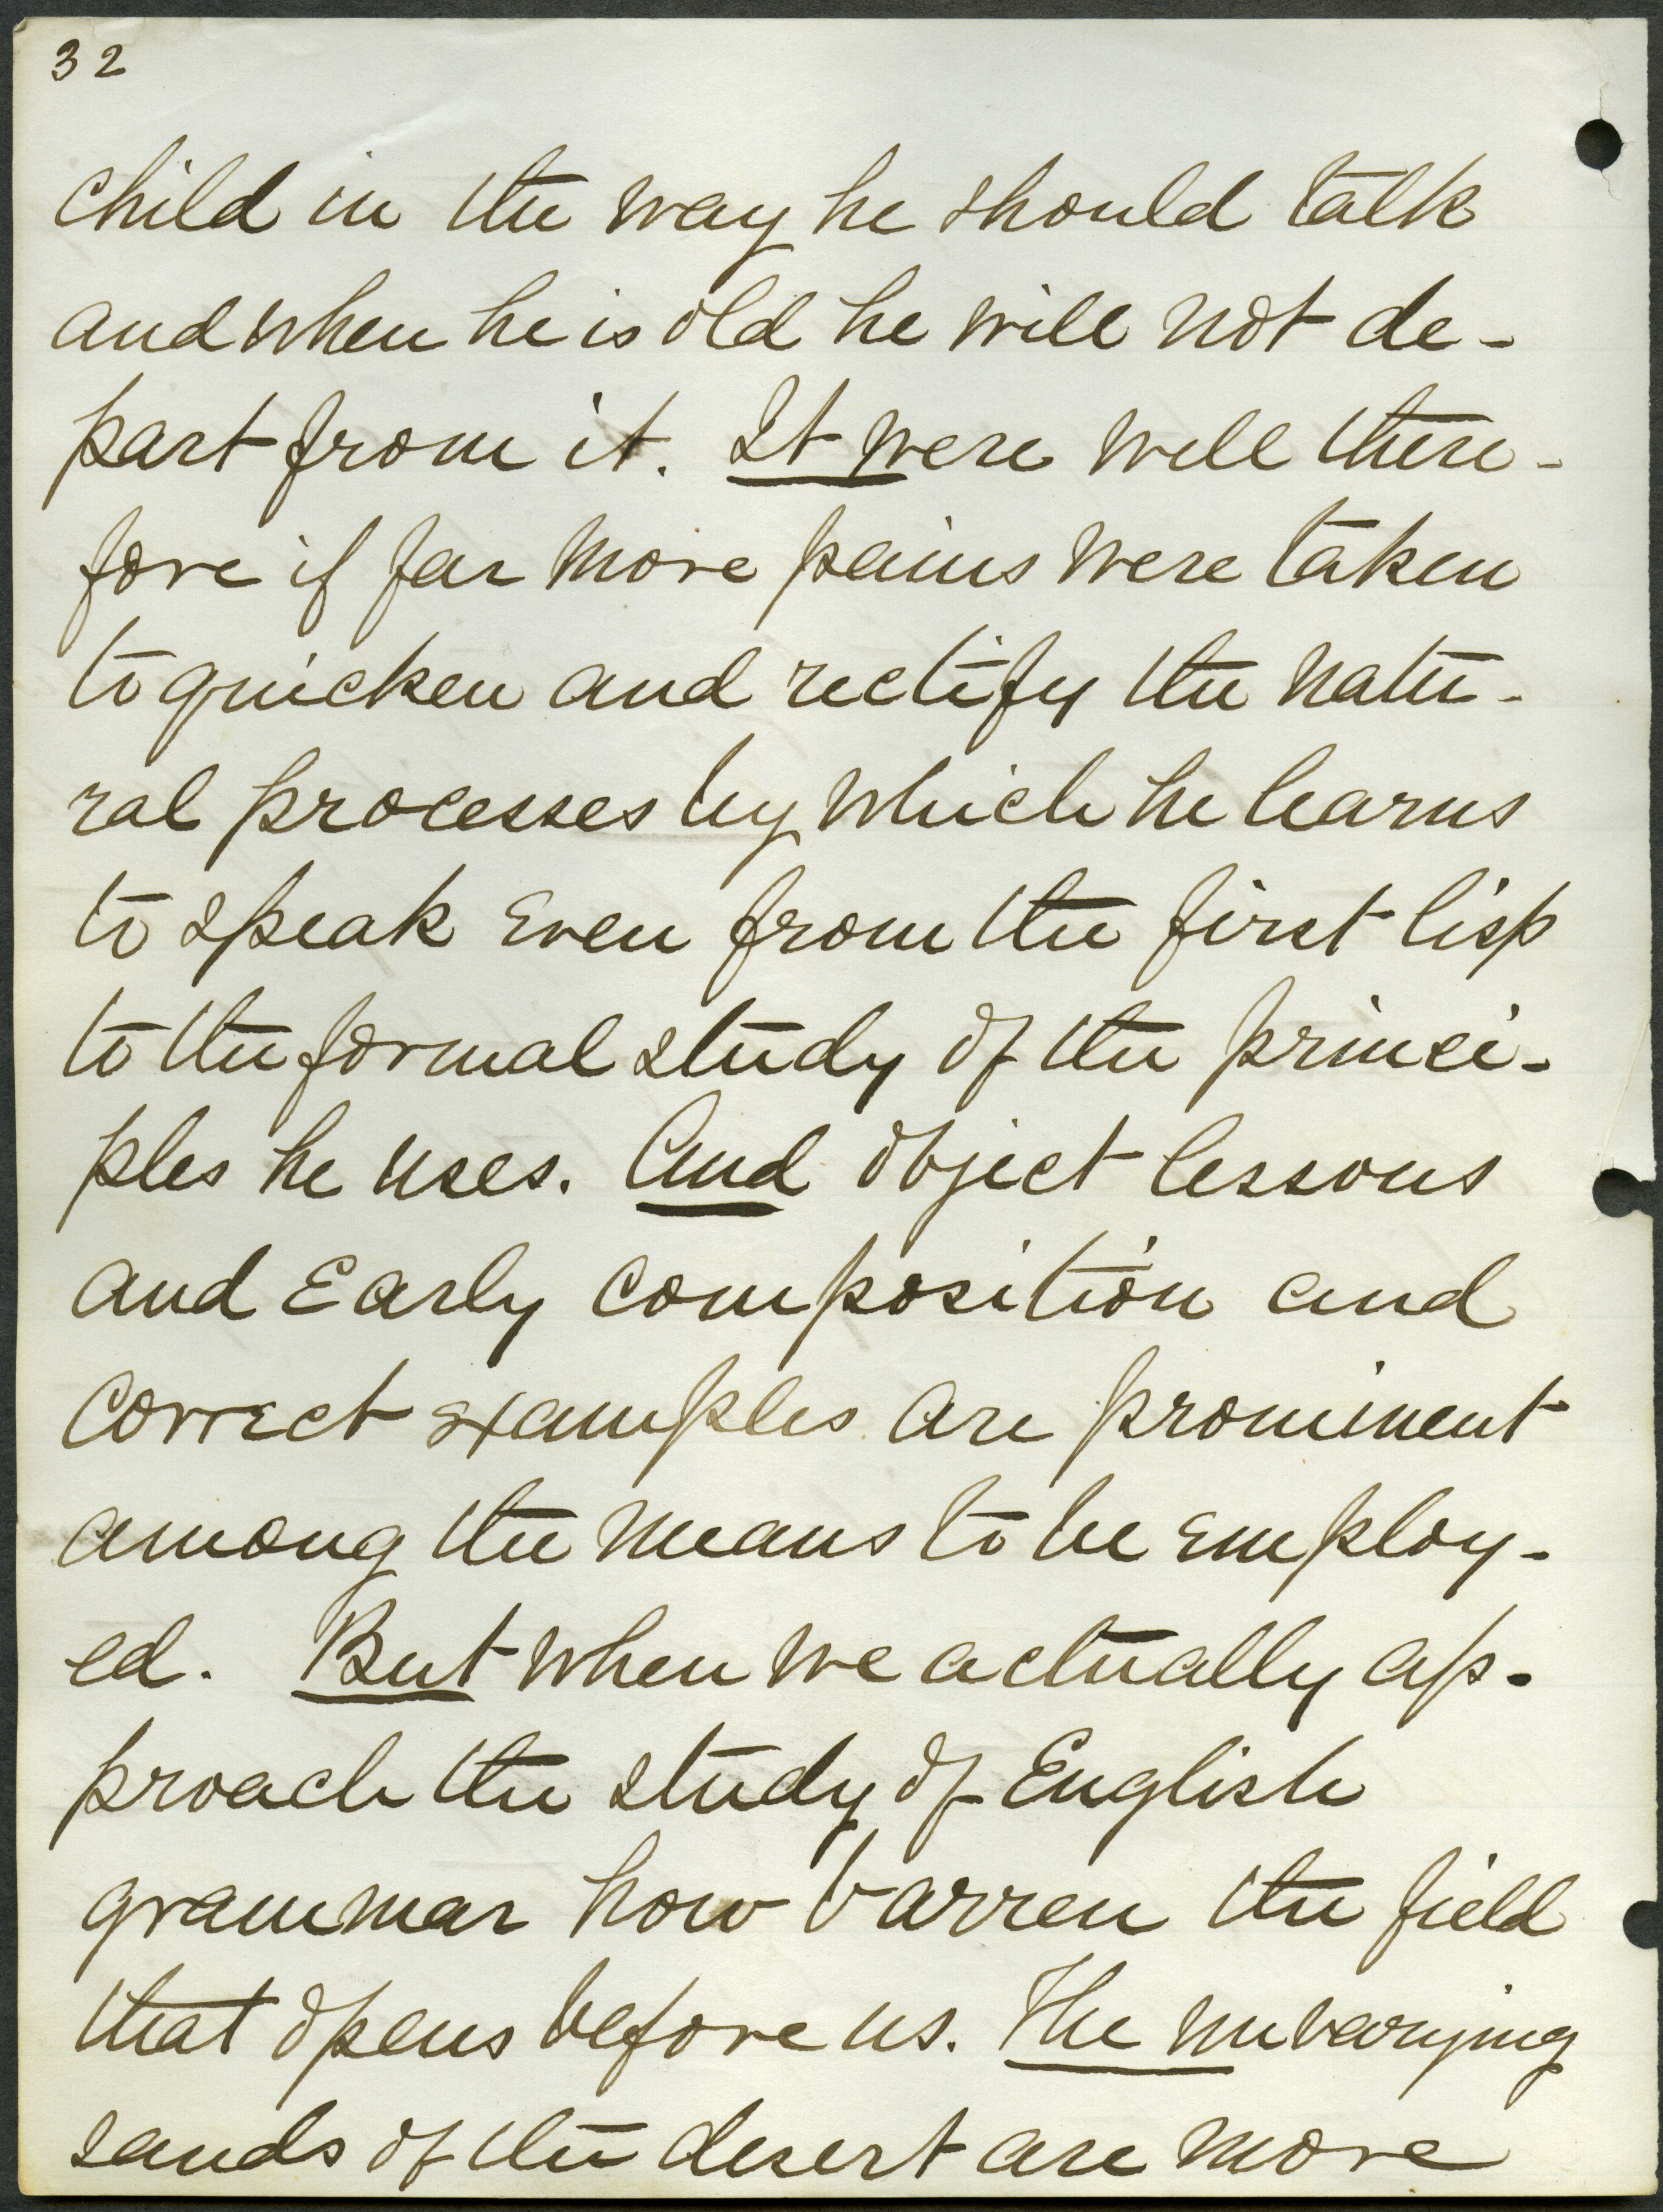 32
child in the way he should talk
and when he is old he will not de-
part from it. It were well there-
fore if far more pains were taken
to quicken and rectify the natu-
ral processes by which he learns
to speak even from the first lisp
to the formal study of the princi-
ples he uses. And object lessons
and early composition and
correct examples are prominent
among the means to be employ-
ed. But when we actually ap-
proach the study of English
grammar how barren the field
that opens before us. The unvarying
sands of the desert are more